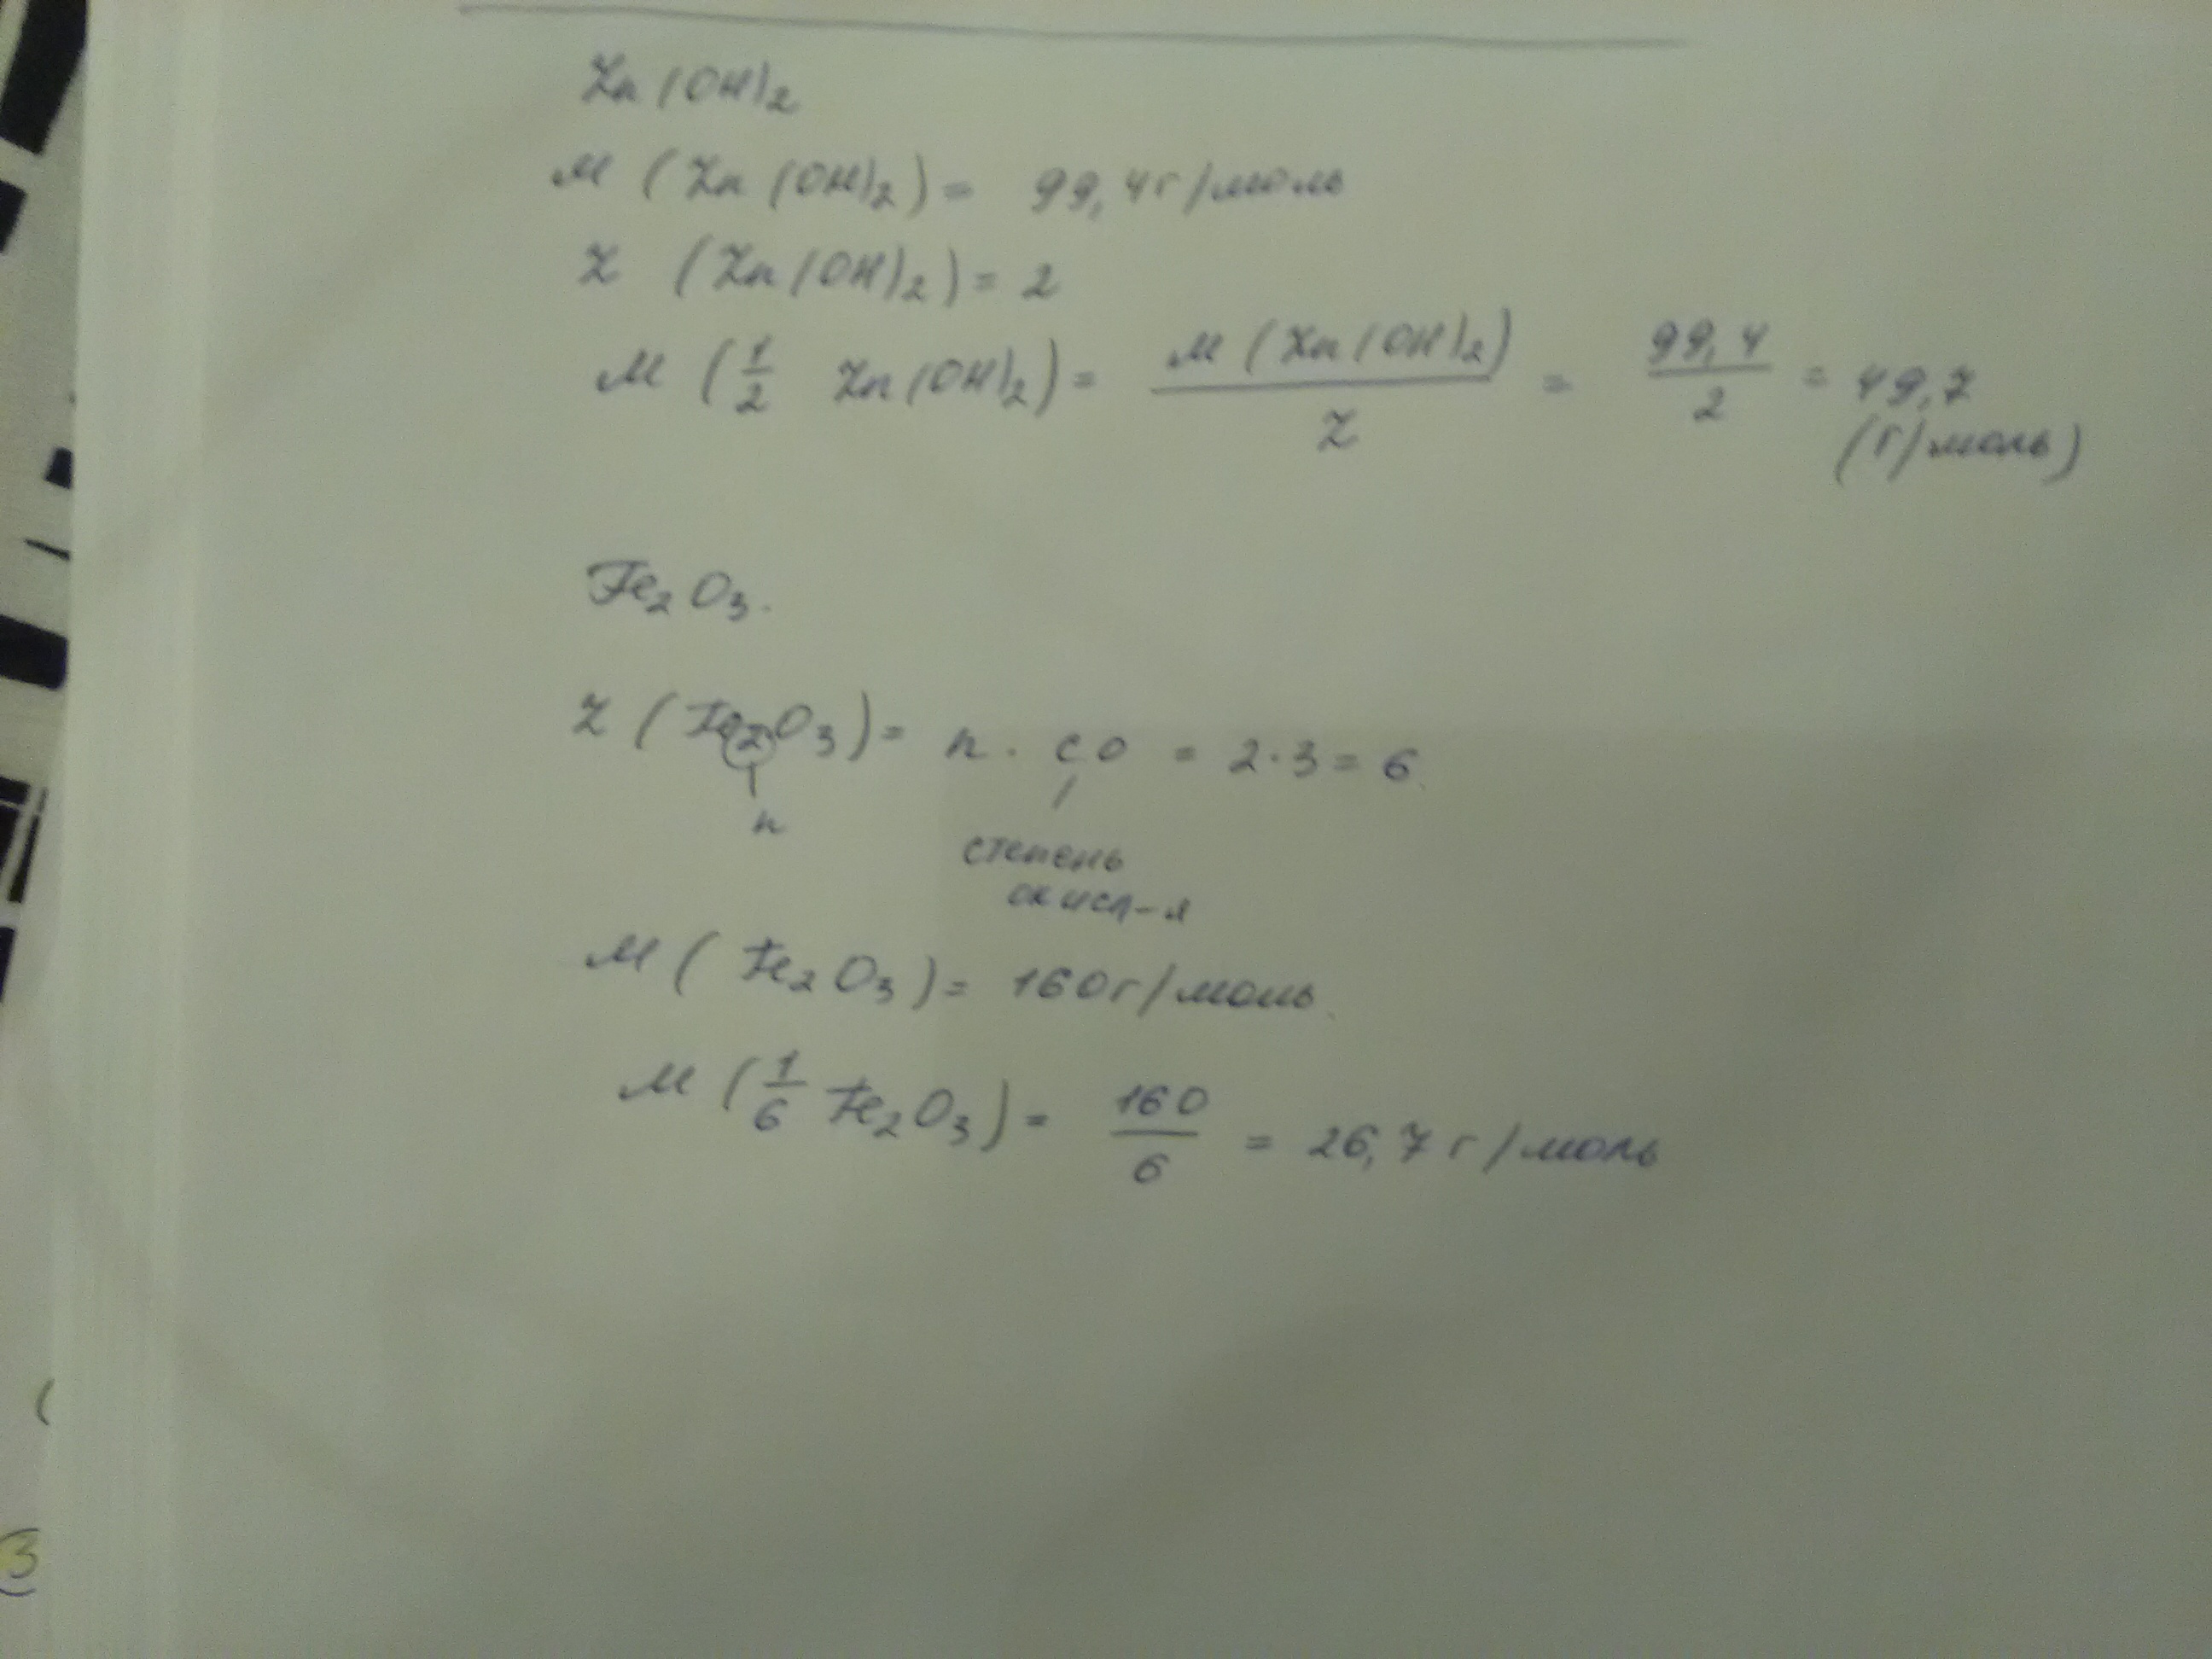 Zn(OH)₂
M (Zn(OH)₂) = 99,4 г/моль
Z (Zn(OH)₂) = 2
M (1/2 Zn(OH)₂) = M(Zn(OH)₂)/Z = 99,4/2 = 49,7
(г/моль)
Fe₂O₃.
Z (Fe₂O₃) = n · с.о = 2·3 = 6
n
степень
окисл-я
M (Fe₂O₃) = 160 г/моль.
M (1/6 Fe₂O₃) = 160/6 = 26,7 г/моль
(
3